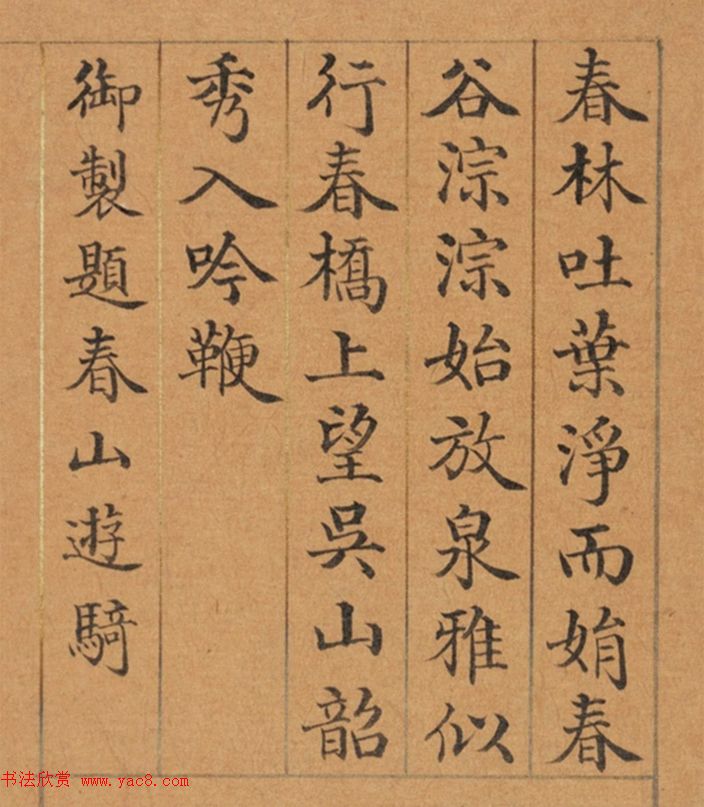 春林吐葉淨而娟春
谷淙淙始放泉雅似
行春橋上望吳山韶
秀入吟鞭
御製題春山遊騎
书法欣赏 www.yac8.com